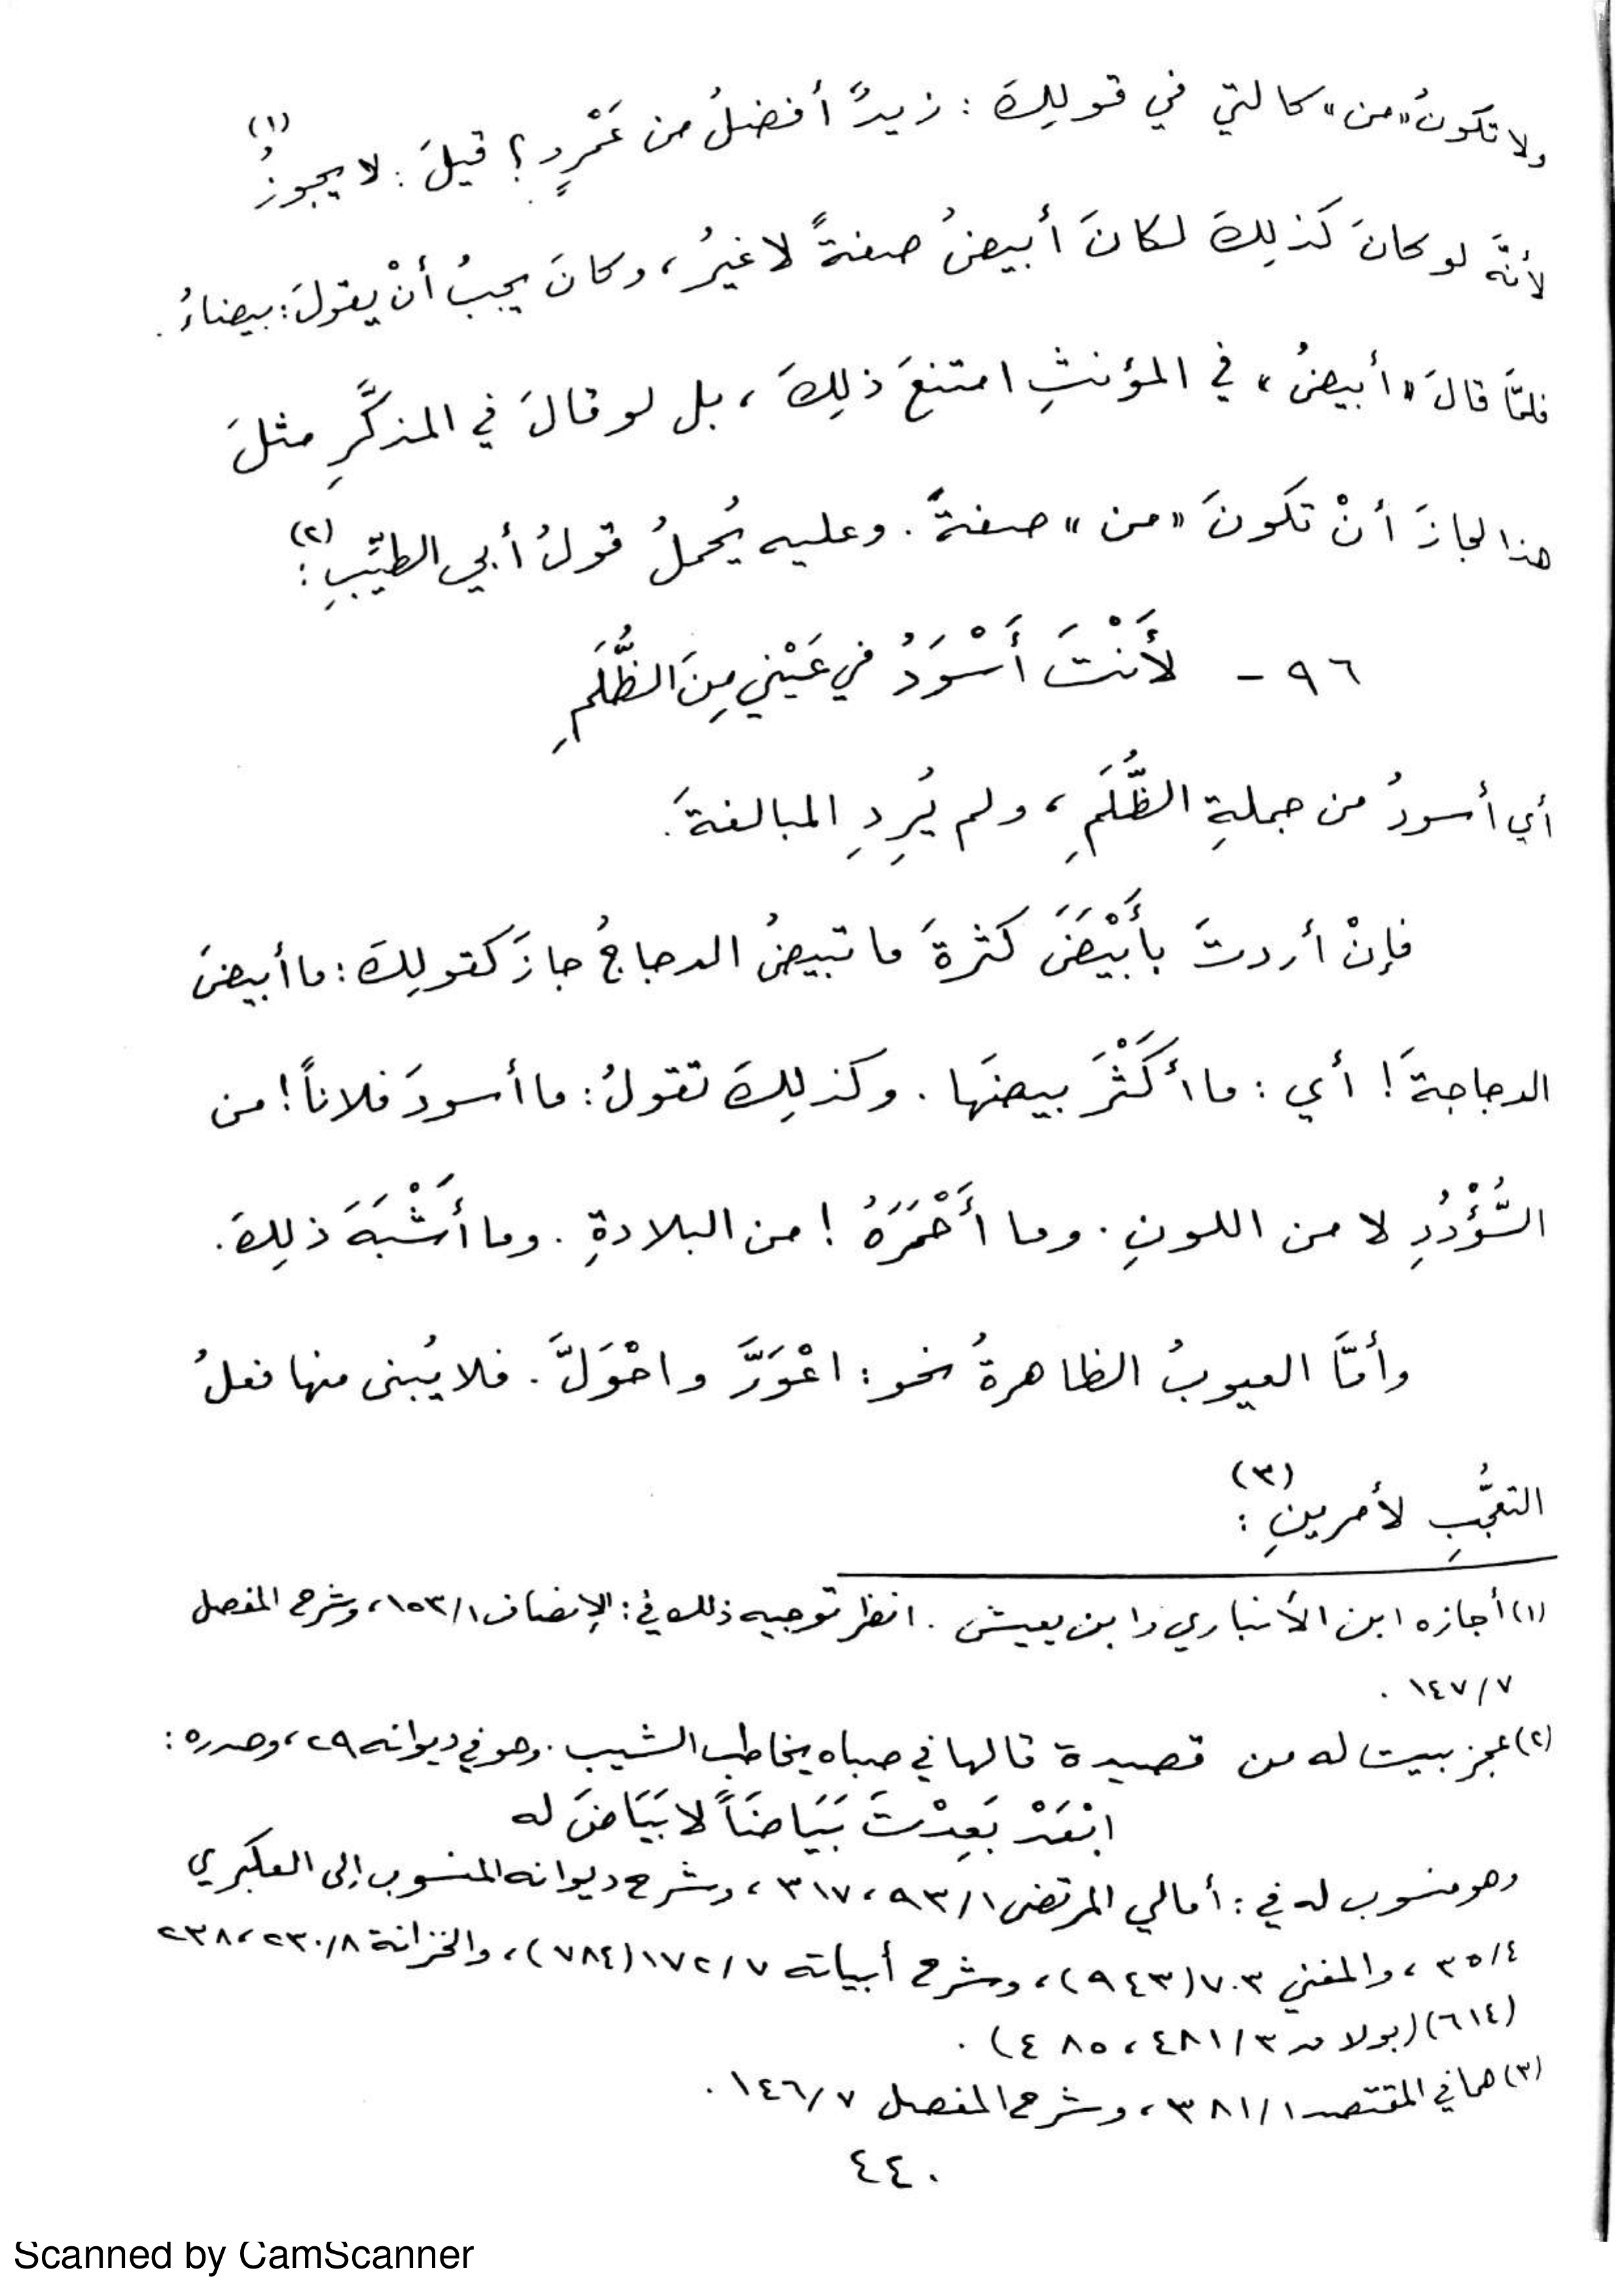 ولا تكونُ «من» كالتي في قولِكَ : زيدٌ أفضلُ من عَمْرٍو ؟ قيلَ : لا يجوزُ (١)
لأنَّه لو كانَ كَذلِكَ لكانَ أبيضُ صفةً لا غيرُ ، وكانَ يجبُ أنْ يقولَ : بيضاءُ .
فلمَّا قالَ «أبيضُ» في المؤنثِ امتنعَ ذلِكَ ، بل لو قالَ في المذكَّرِ مثلَ
هذا لجازَ أنْ تكونَ «من» صفةً . وعليه يُحملُ قولُ أبي الطيِّبِ (٢) :
٩٦ - لَأَنْتَ أَسْوَدُ في عَيْني مِنَ الظُّلَمِ
أي أسودُ من جملةِ الظُّلَمِ ، ولم يُرِدِ المبالغةَ .
فإنْ أردتَ بأَبْيَضَ كَثرةَ ما تبيضُ الدجاجُ جازَ كقولِكَ : ما أبيضَ
الدجاجةَ ! أي : ما أكْثَرَ بيضَها . وكذلِكَ تقولُ : ما أسودَ فلاناً ! من
السُّؤْدُدِ لا من اللونِ . وما أَحْمَرَهُ ! من البلادةِ . وما أَشْبَهَ ذلِكَ .
وأمَّا العيوبُ الظاهرةُ نحو : اعْوَرَّ واحْوَلَّ . فلا يُبنى منها فعلُ
التعجُّبِ لأمرينِ (٣) :
(١) أجازه ابن الأنباري وابن يعيش . انظر توجيه ذلك في : الإنصاف ١/١٥٣ ، وشرح المفصل
٧/١٤٧ .
(٢) عجز بيت له من قصيدة قالها في صباه يخاطب الشيب . وهو في ديوانه ٢٩ ، وصدره :
ابْعَدْ بَعِدْتَ بَيَاضَاً لا بَيَاضَ له
وهو منسوب له في : أمالي المرتضى ١/٩٣ ، ٣١٧ ، وشرح ديوانه المنسوب إلى العكبري
٤/٣٥ ، والمغني ٧٠٣ (٩٤٣) ، وشرح أبياته ٧/١٧٢ (٧٨٤) ، والخزانة ٨/٢٣٠ ، ٢٣٨
(٦١٤) (بولاق ٣/٤٨١ ، ٤٨٥) .
(٣) هما في المقتصد ١/٣٨١ ، وشرح المفصل ٧/١٤٦ .
٤٤٠
Scanned by CamScanner